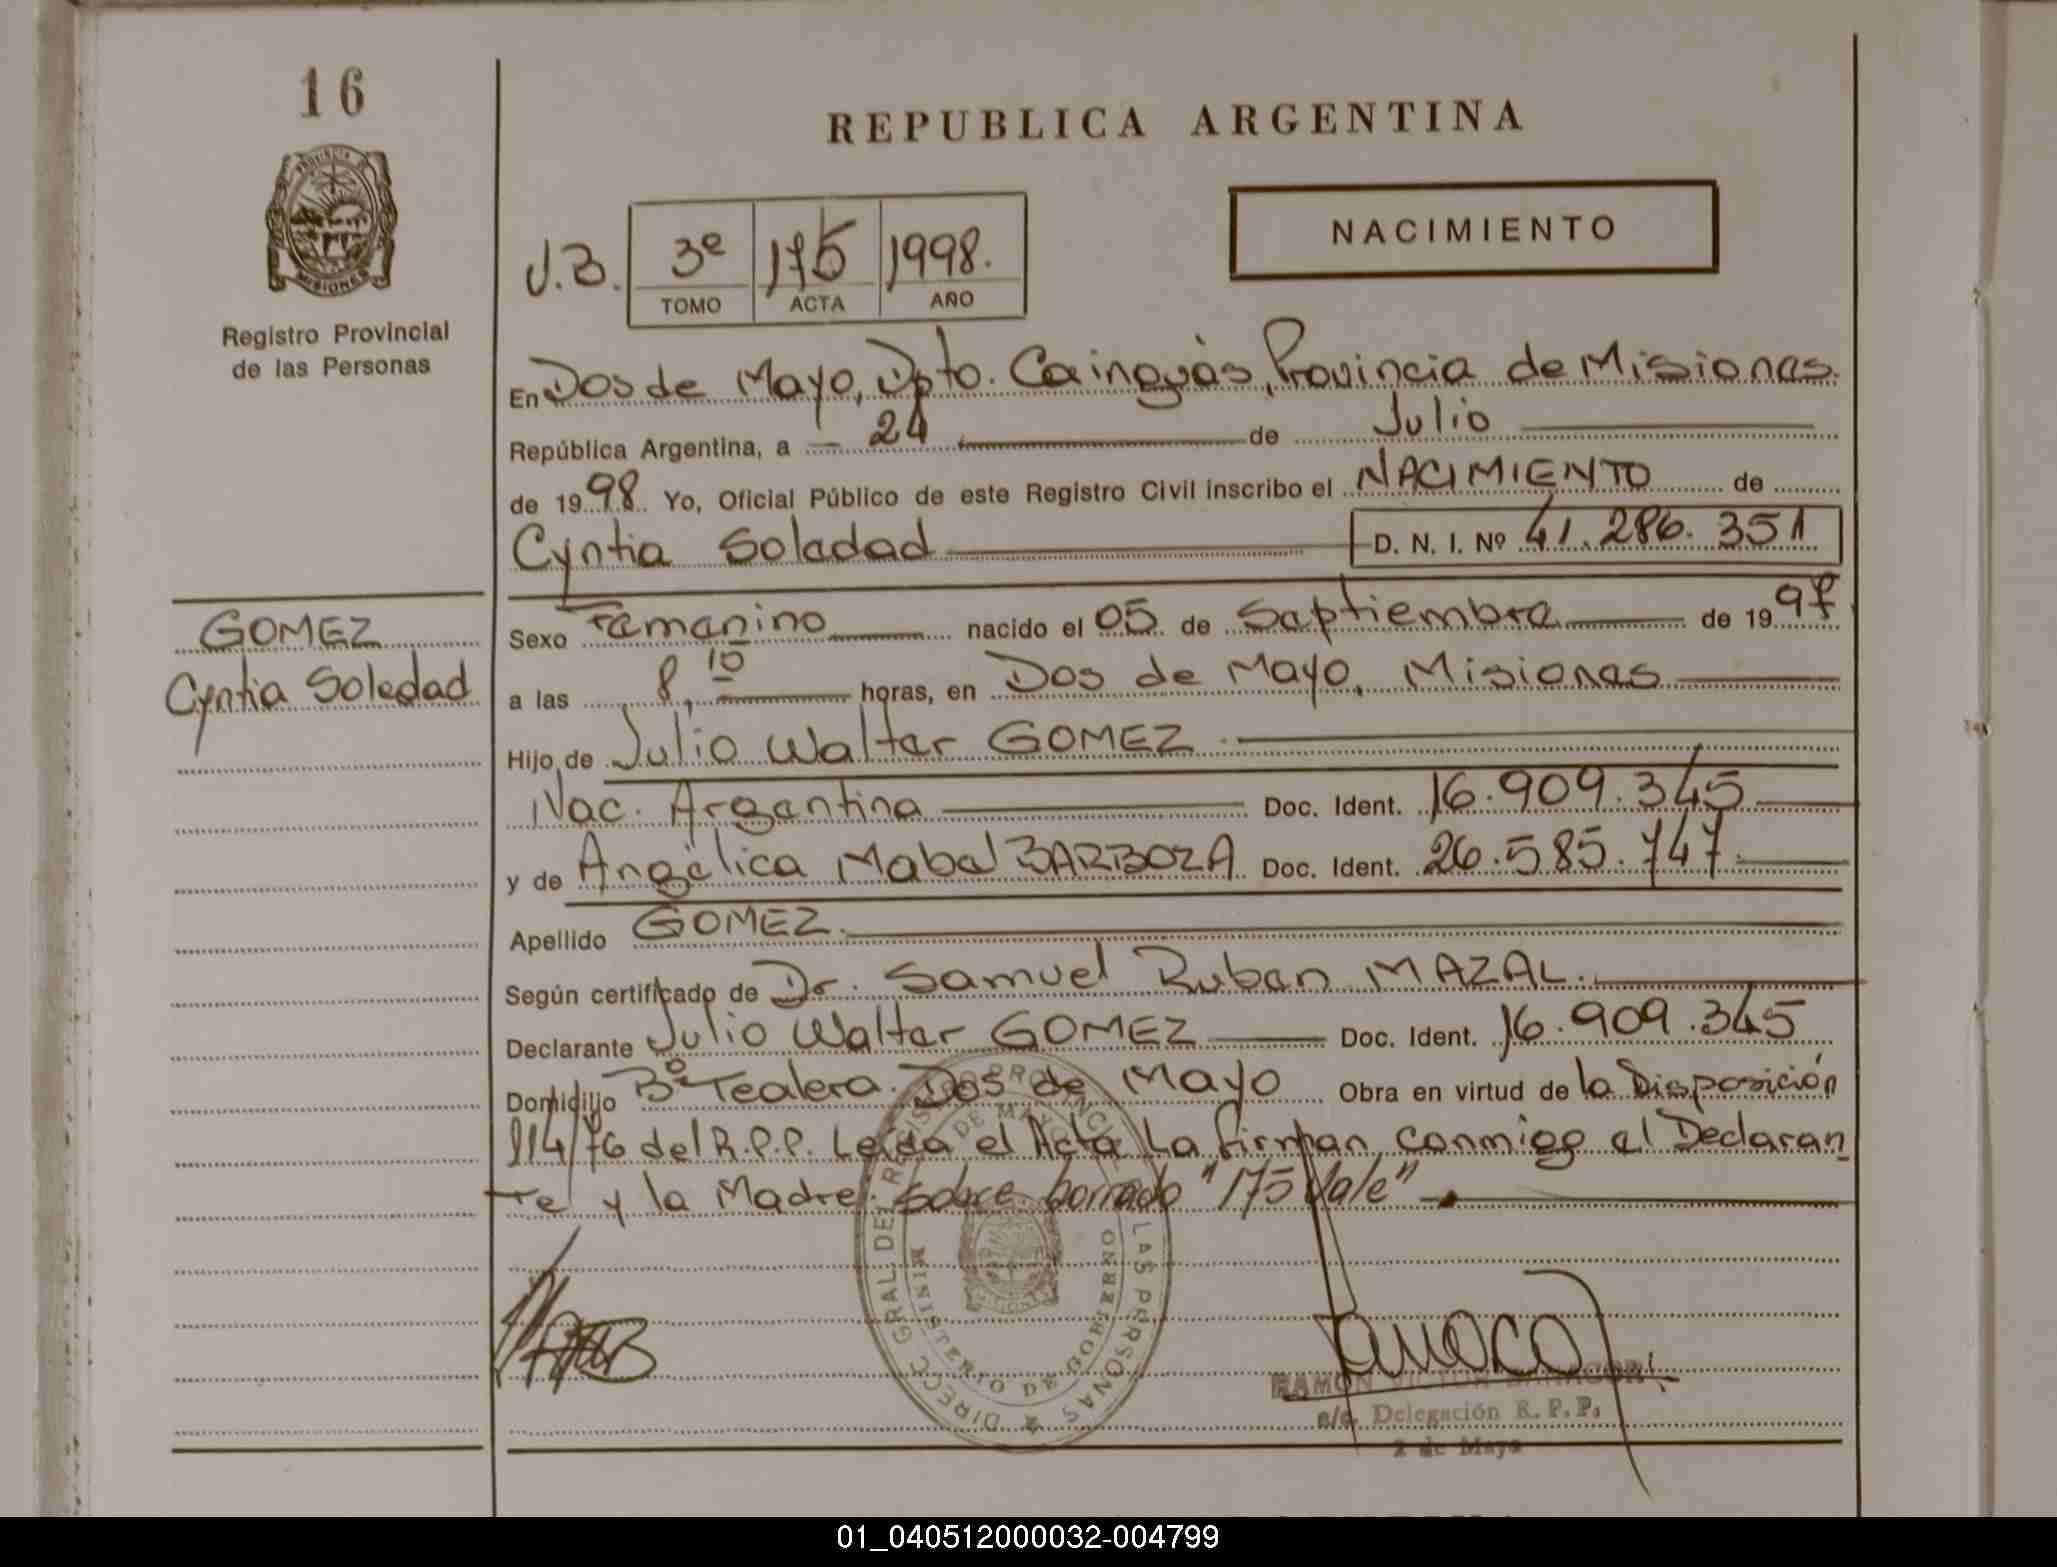 16
REPUBLICA ARGENTINA
NACIMIENTO
J.B. 3º 175 1998.
TOMO ACTA AÑO
PROVINCIA DE MISIONES
Registro Provincial
de las Personas
En Dos de Mayo, Dpto. Cainguás, Provincia de Misiones.
República Argentina, a 24 de Julio
de 1998 Yo, Oficial Público de este Registro Civil inscribo el NACIMIENTO de
Cyntia Soledad D. N. I. Nº 41.286.351
GOMEZ
Cyntia Soledad
Sexo Femenino nacido el 05 de Septiembre de 1997
a las 8,10 horas, en Dos de Mayo, Misiones
Hijo de Julio Walter GOMEZ
Nac. Argentina Doc. Ident. 16.909.345
y de Angélica Mabel BARBOZA Doc. Ident. 26.585.747
Apellido GOMEZ
Según certificado de Dr. Samuel Ruben MAZAL.
Declarante Julio Walter GOMEZ Doc. Ident. 16.909.345
Domicilio Bº Tealera. Dos de Mayo Obra en virtud de la Disposición
114/76 del R.P.P. Leída el Acta La firman conmigo el Declaran
te y la Madre. sobre borrado "175 Vale".
DIRECC GRAL DEL REGISTRO PROVINCIAL DE LAS PERSONAS
MINISTERIO DE GOBIERNO
RAMON VICTOR
a/c. Delegación R. P. P.
2 de Mayo
01_040512000032-004799